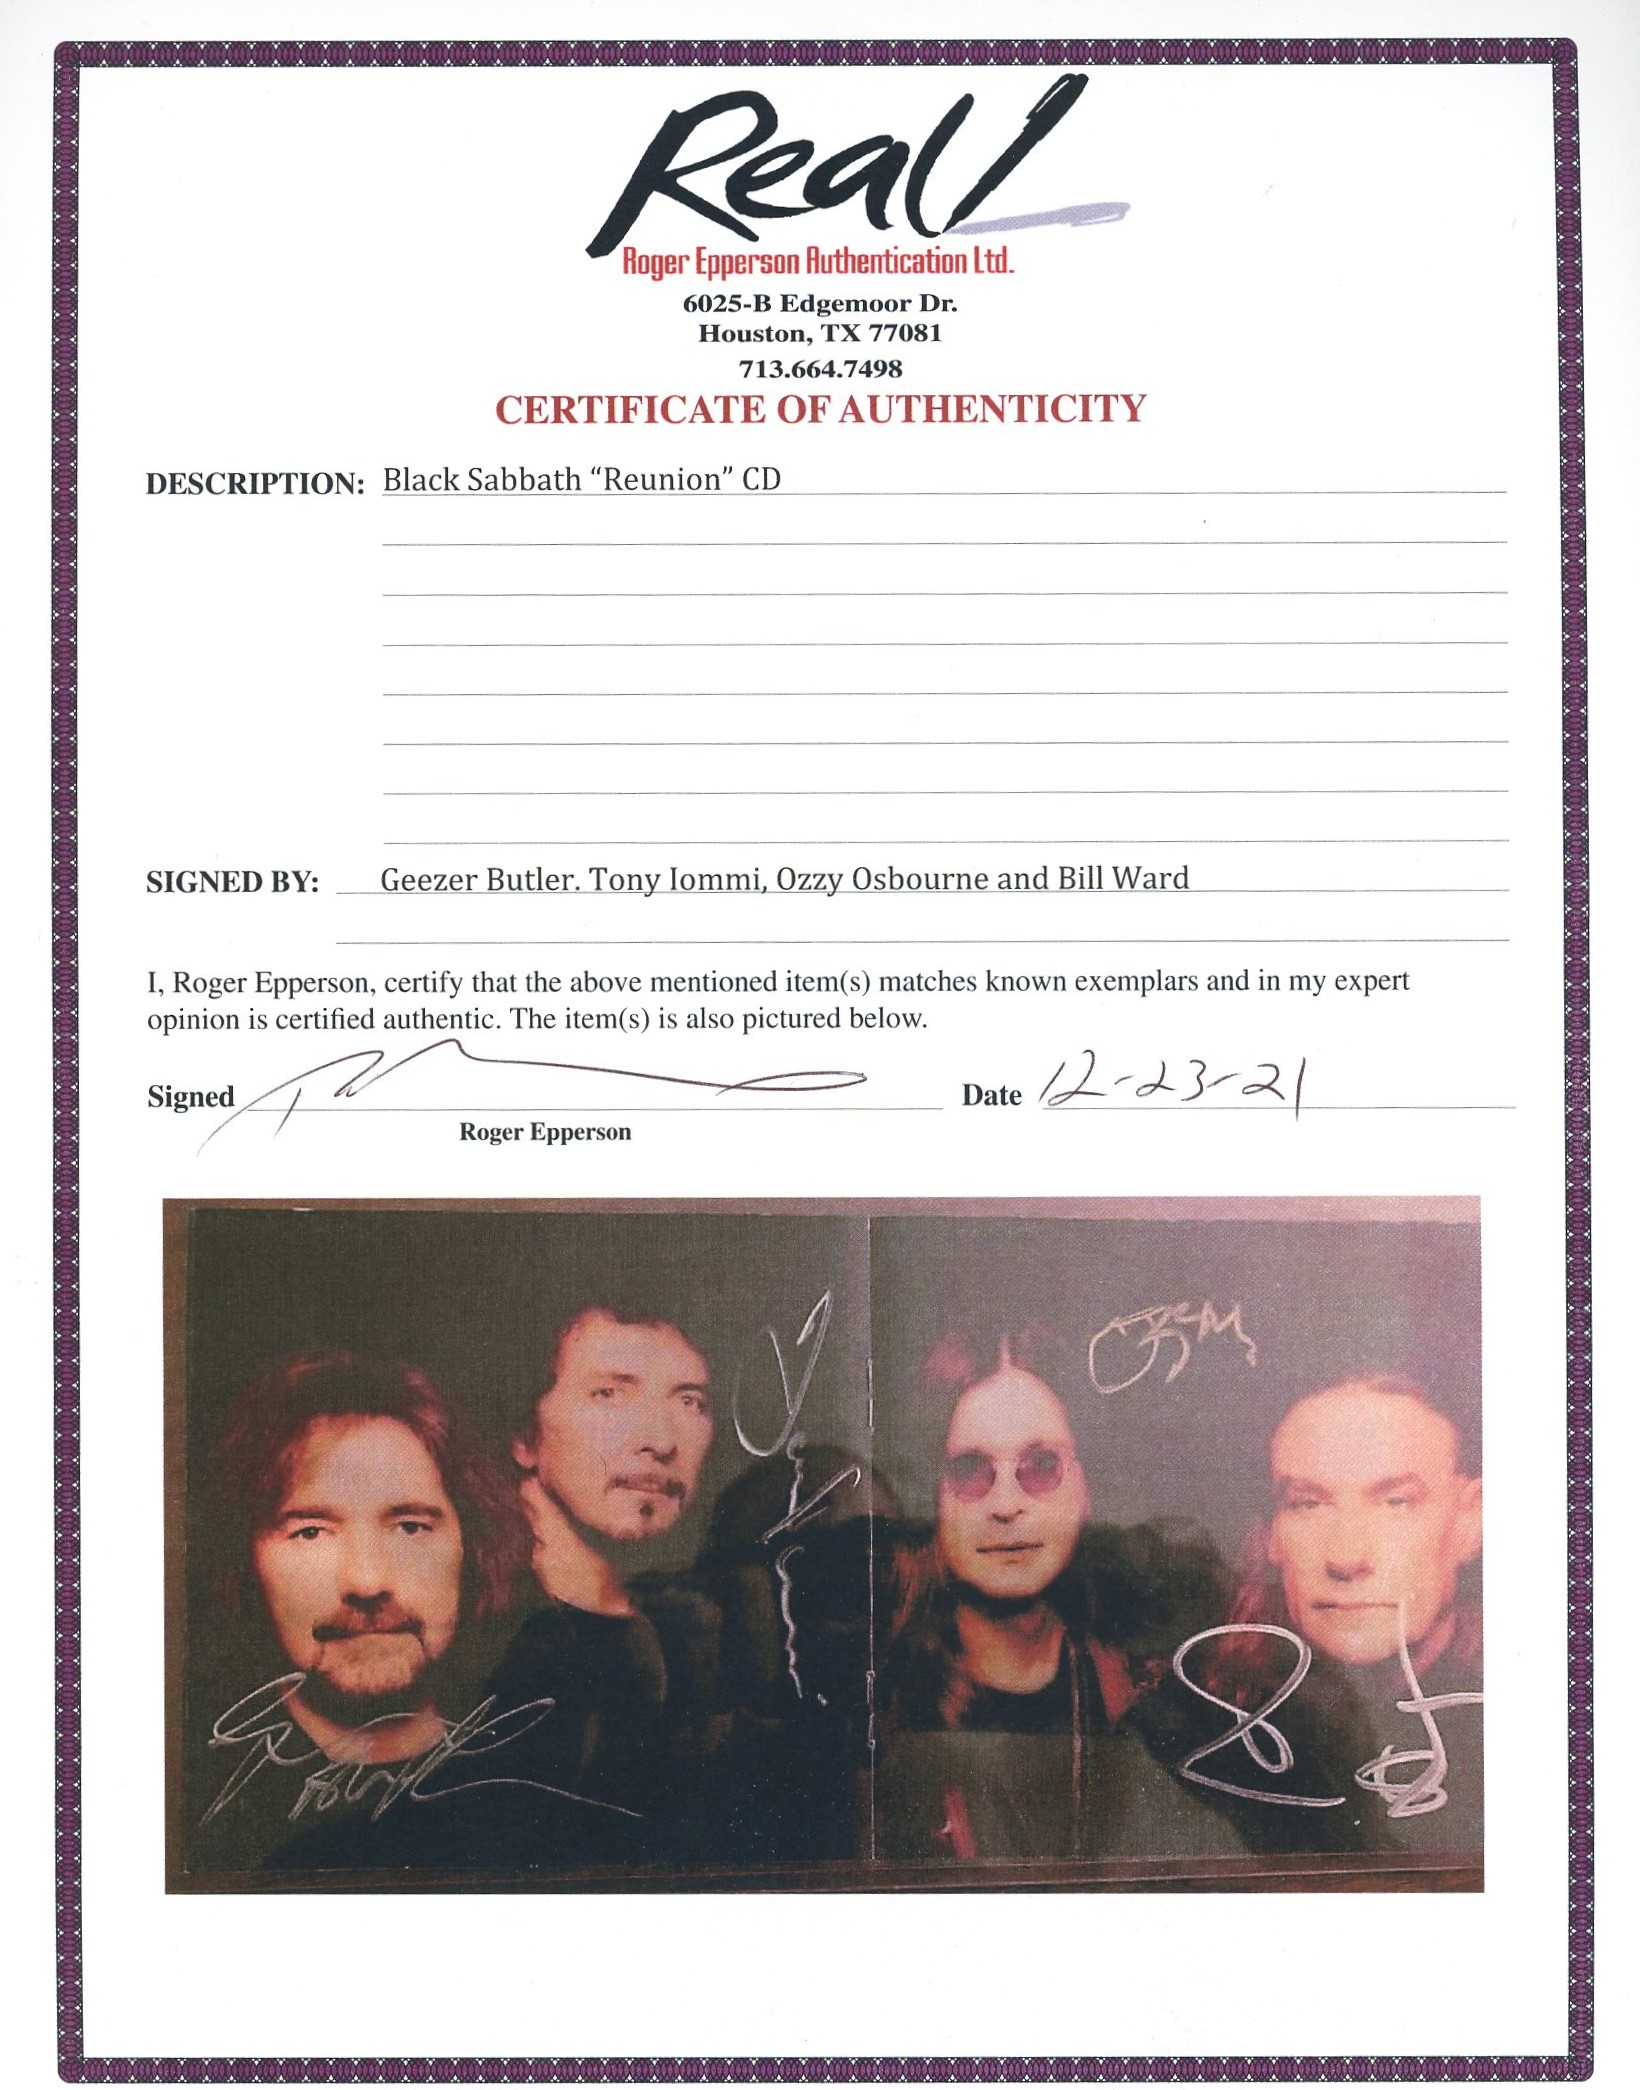 Real
Roger Epperson Authentication Ltd.
6025-B Edgemoor Dr.
Houston, TX 77081
713.664.7498
CERTIFICATE OF AUTHENTICITY
DESCRIPTION: Black Sabbath “Reunion” CD
SIGNED BY: Geezer Butler. Tony Iommi, Ozzy Osbourne and Bill Ward
I, Roger Epperson, certify that the above mentioned item(s) matches known exemplars and in my expert
opinion is certified authentic. The item(s) is also pictured below.
Signed Date 12-23-21
Roger Epperson
Ozzy